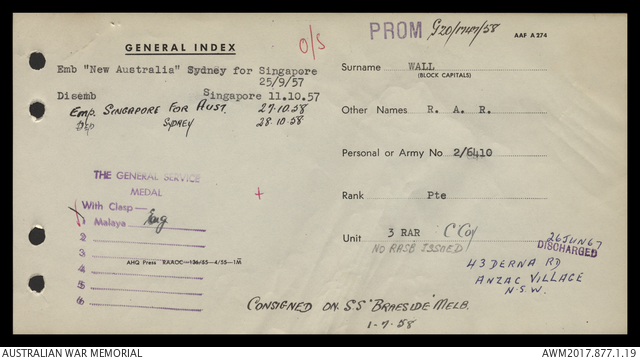 GENERAL INDEX
O/S
PROM G20/747/58
AAF A 274
Emb "New Australia" Sydney for Singapore
25/9/57
Disemb Singapore 11.10.57
Emp. SINGAPORE FOR AUST. 27.10.58
Dep SYDNEY 28.10.58
Surname WALL
(BLOCK CAPITALS)
Other Names R. A. R.
Personal or Army No 2/6410
Rank Pte
Unit 3 RAR C Coy
NO RASB ISSUED
26 JUN 67
DISCHARGED
43 DERNA RD
ANZAC VILLAGE
N.S.W.
THE GENERAL SERVICE
MEDAL
With Clasp
1 Malaya
2
3
4
5
6
AHQ Press RAAOC—126/55—4/55—1M
CONSIGNED ON SS "BRAESIDE" MELB.
1-7-58
AUSTRALIAN WAR MEMORIAL
AWM2017.877.1.19